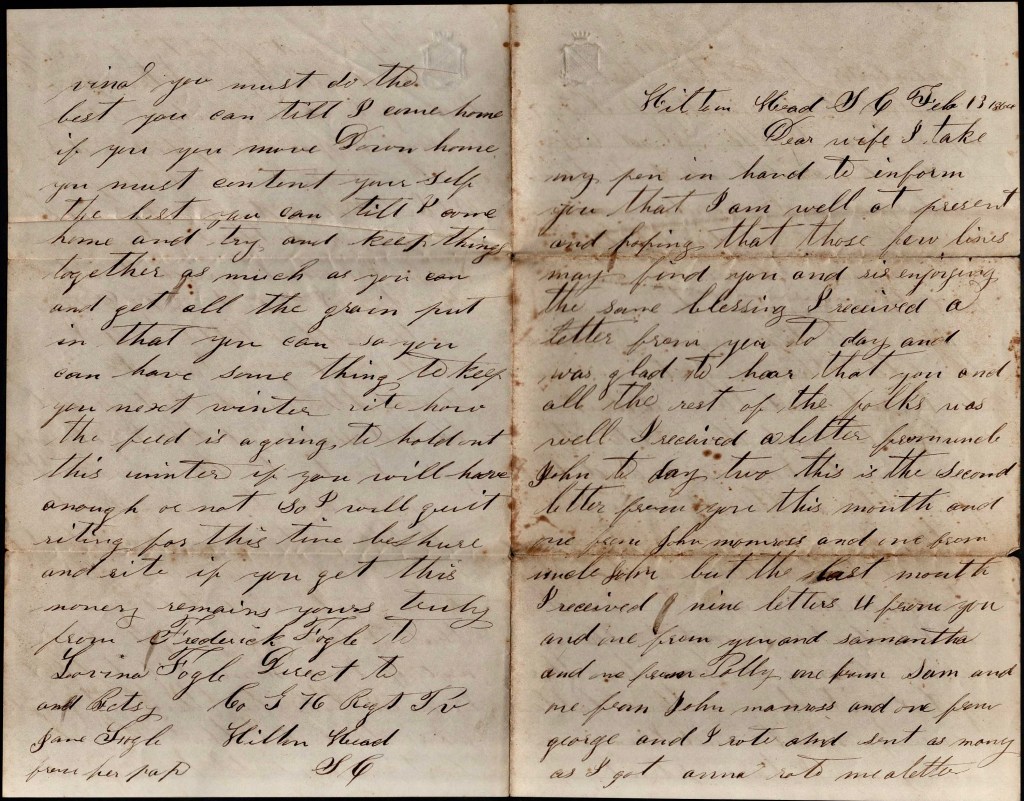 Hilton Head S C Feb 13
Dear wife I take
my pen in hand to inform
you that I am well at present
and hoping that those few lines
may find you and sis enjoying
the same blessing I received a
letter from you to day and
was glad to hear that you and
all the rest of the folks was
well I received a letter from uncle
John to day two this is the second
letter from you this mouth and
one from John monross and one from
uncle John but the last mouth
I received 9 nine letters 4 from you
and one from you and samantha
and one from Polly one from Sam and
one from John monross and one from
george and I rote and sent as many
as I got anna rote me a letter
vina you must do the
best you can till I come home
if you you move Down home
you must content your Self
the best you can till I come
home and try and keep things
together as much as you can
and get all the grain put
in that you can so you
can have some thing to keep
you next winter rite how
the feed is a going to hold out
this winter if you will have
anough or not So I will quit
riting for this time be shure
and rite if you get this
money remains yours truly
from Frederick Fogle to
Lovina Fogle Direct to
and Betsy Co G 76 Regt Pv
Jane Fogle Hilton Head
from her pap S C